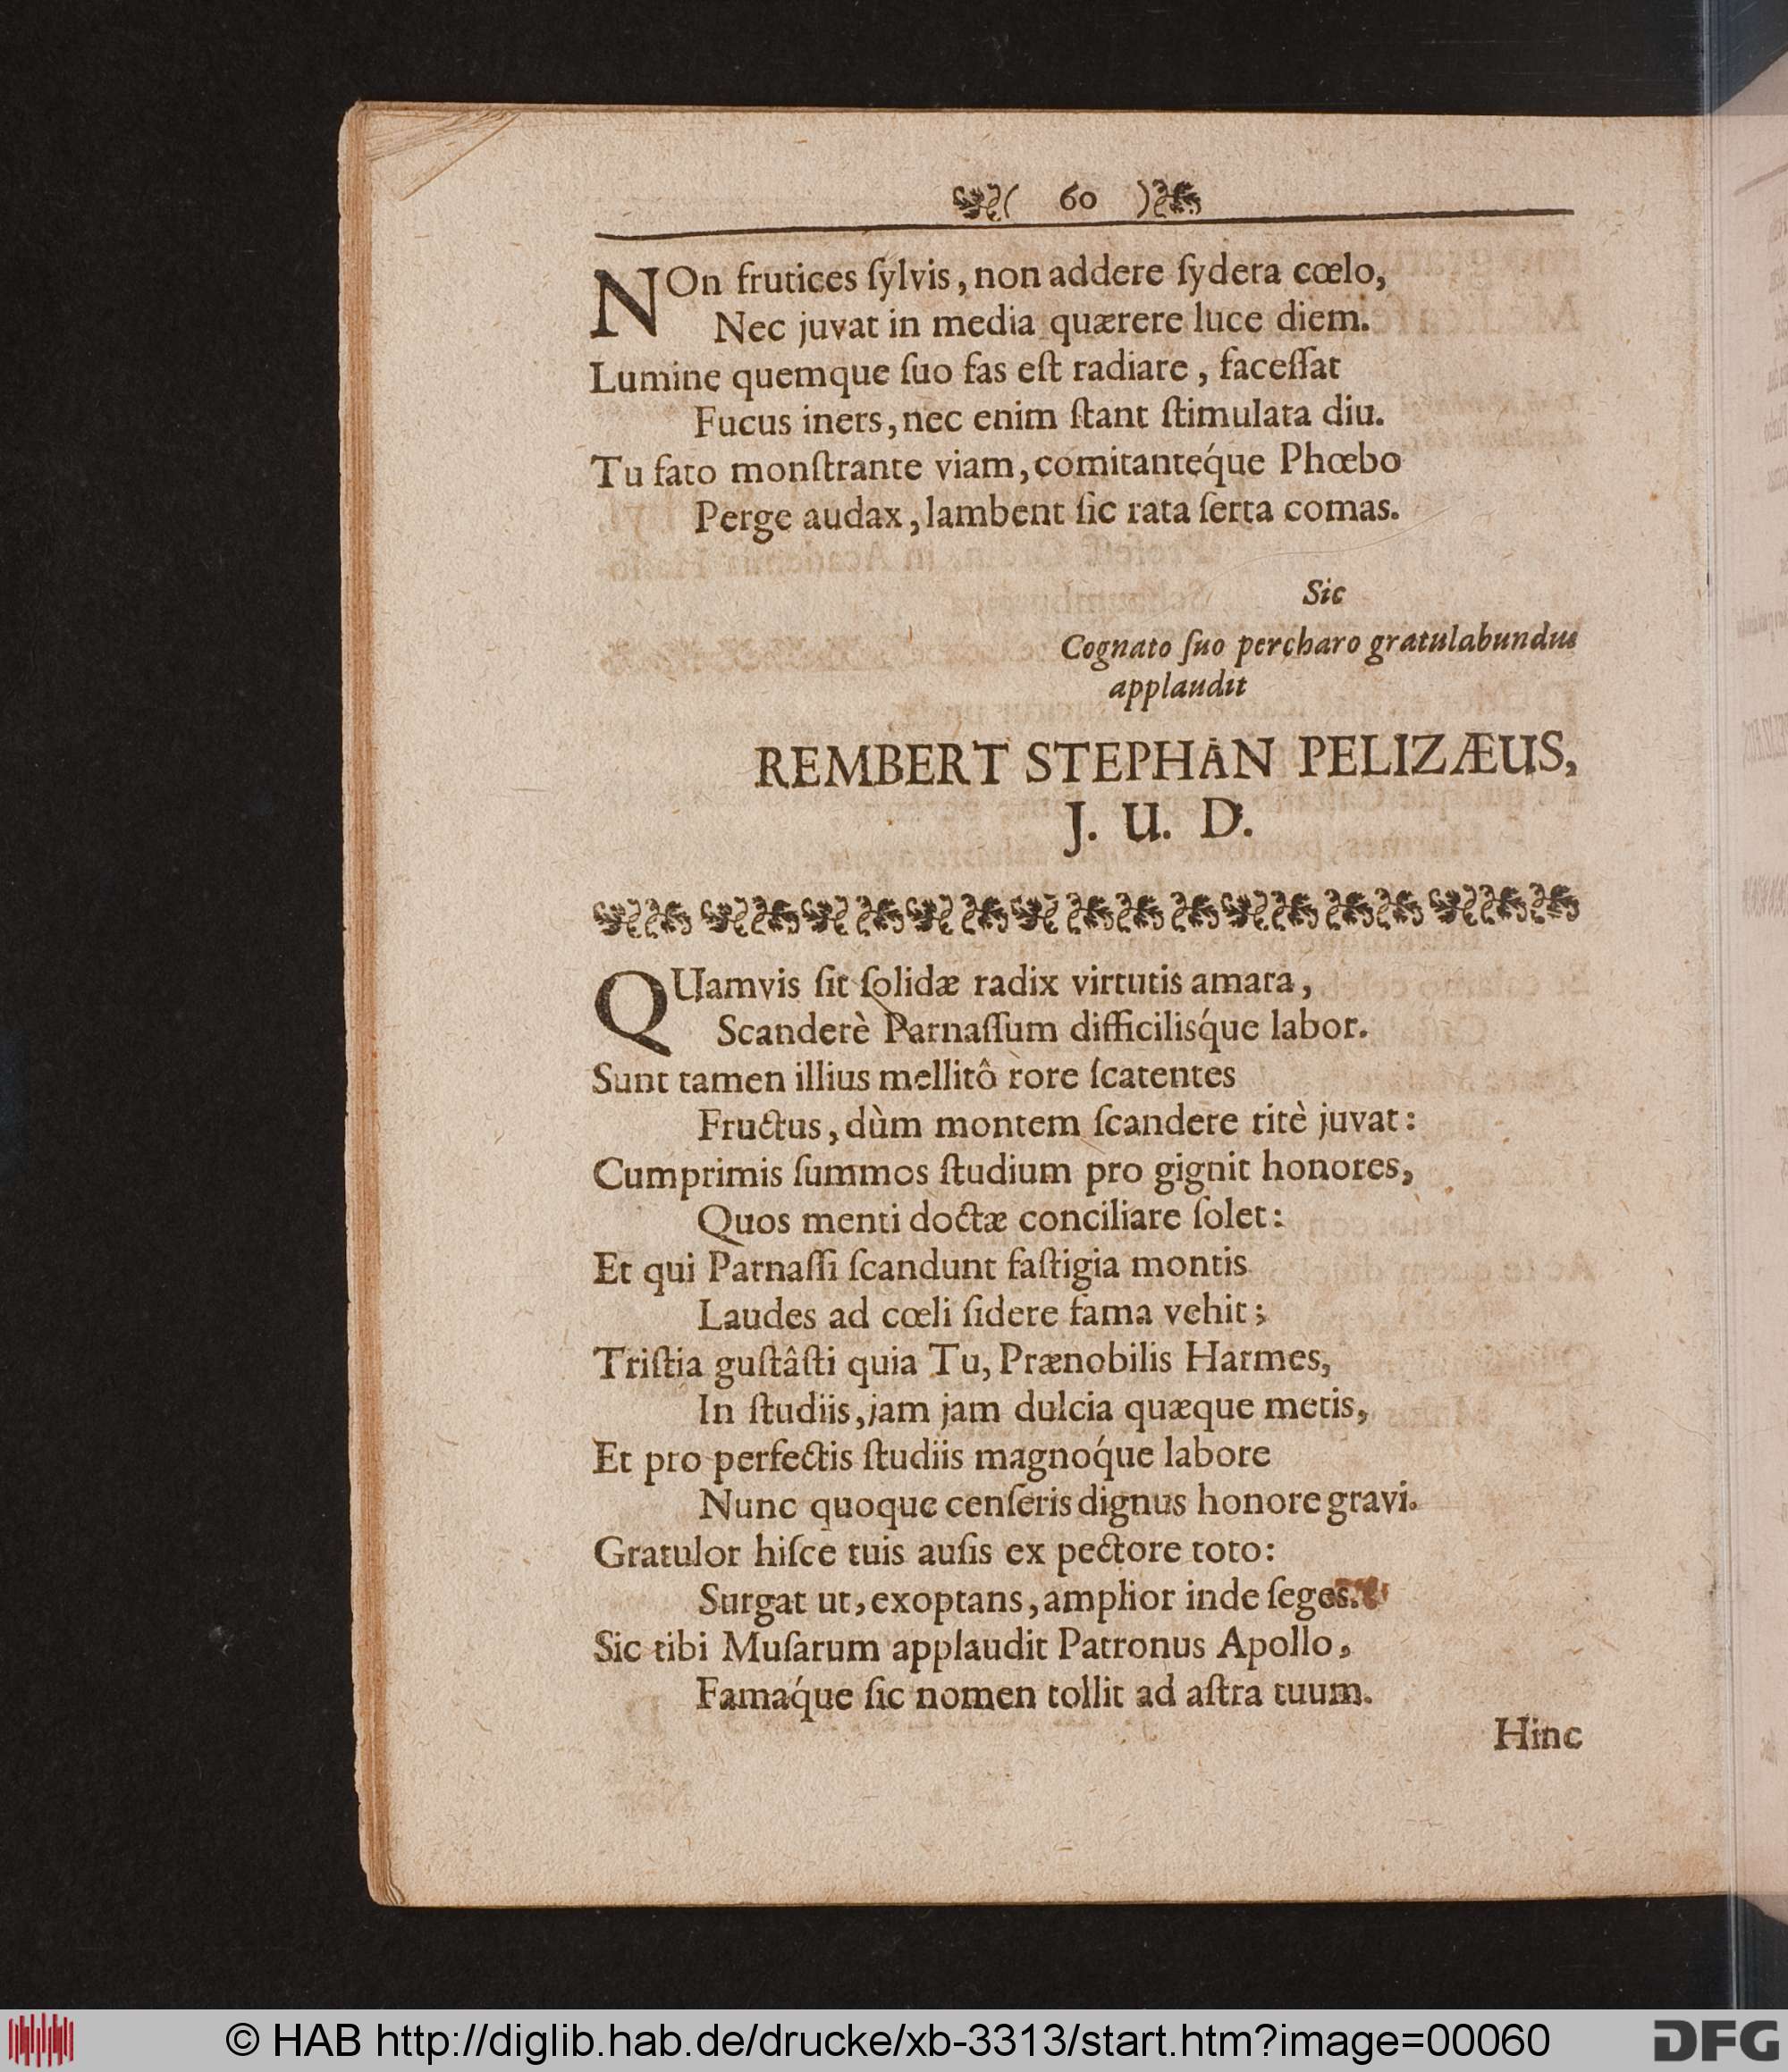 ( 60 )
NOn frutices ſylvis, non addere ſydera cœlo,
Nec juvat in media quærere luce diem.
Lumine quemque ſuo fas eſt radiare, faceſſat
Fucus iners, nec enim ſtant ſtimulata diu.
Tu fato monſtrante viam, comitanteq́ue Phœbo
Perge audax, lambent ſic rata ſerta comas.
Sic
Cognato ſuo percharo gratulabundus
applaudit
REMBERT STEPHAN PELIZÆUS,
J. U. D.
QUamvis ſit ſolidæ radix virtutis amara,
Scanderè Parnaſſum difficilisq́ue labor.
Sunt tamen illius mellitô rore ſcatentes
Fructus, dùm montem ſcandere ritè juvat:
Cumprimis ſummos ſtudium pro gignit honores,
Quos menti doctæ conciliare ſolet:
Et qui Parnaſſi ſcandunt faſtigia montis
Laudes ad cœli ſidere fama vehit;
Triſtia guſtâſti quia Tu, Prænobilis Harmes,
In ſtudiis, jam jam dulcia quæque metis,
Et pro perfectis ſtudiis magnoq́ue labore
Nunc quoque cenſeris dignus honore gravi.
Gratulor hiſce tuis auſis ex pectore toto:
Surgat ut, exoptans, amplior inde ſeges.
Sic tibi Muſarum applaudit Patronus Apollo,
Famaq́ue ſic nomen tollit ad aſtra tuum.
Hinc
© HAB http://diglib.hab.de/drucke/xb-3313/start.htm?image=00060
DFG